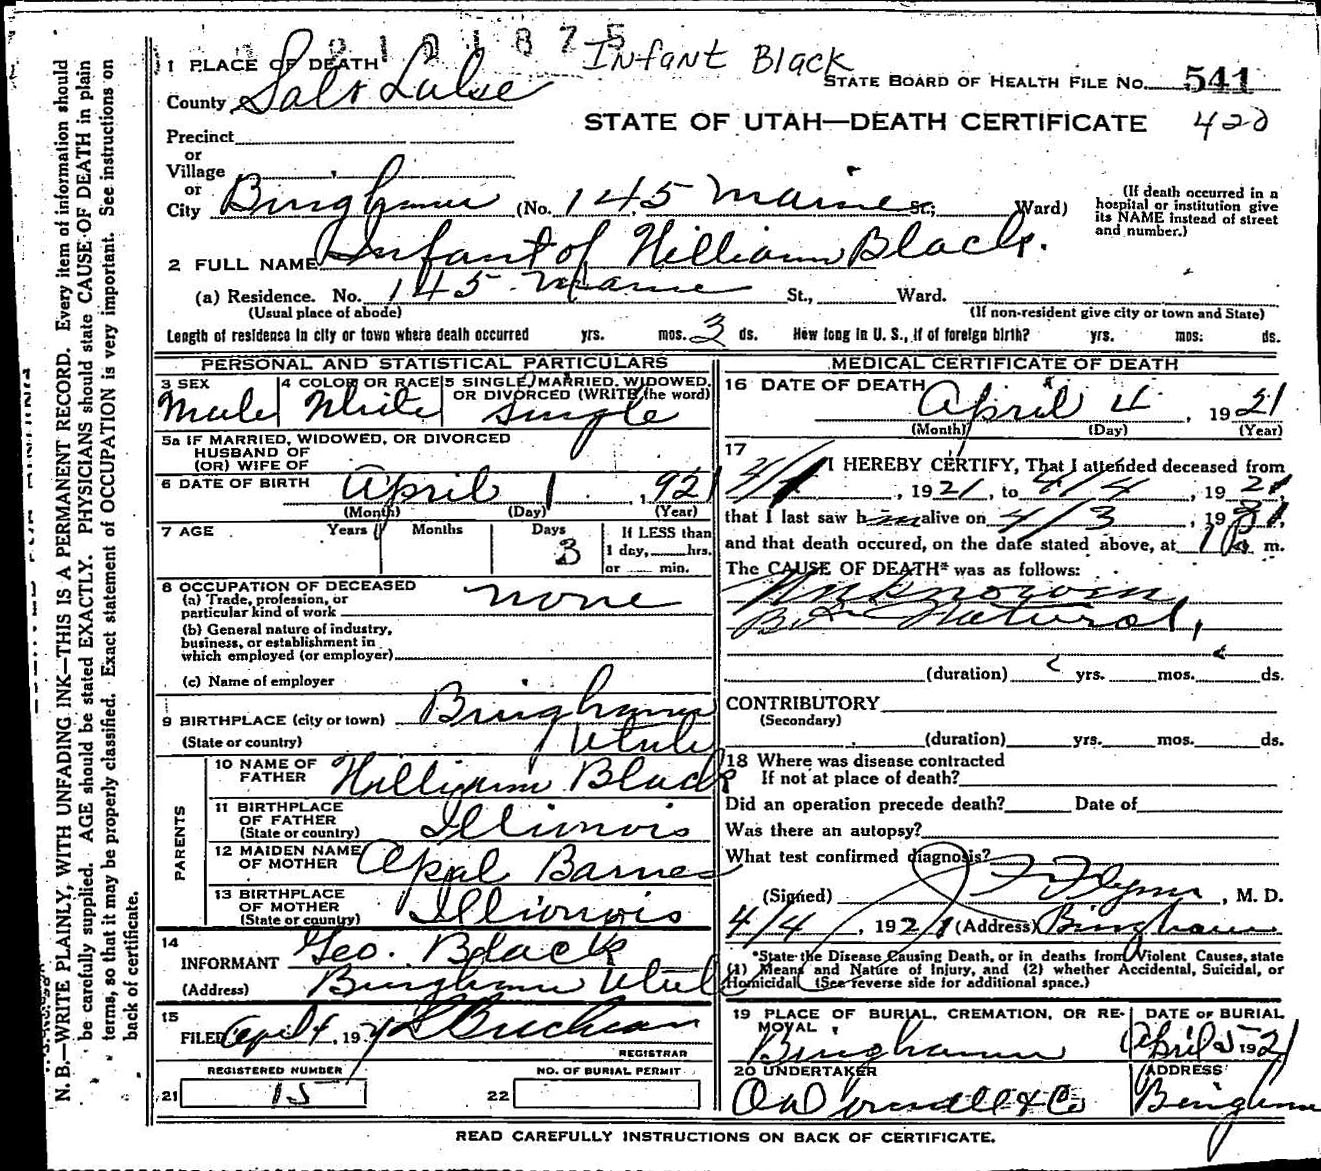 Infant Black
1 PLACE OF DEATH
STATE BOARD OF HEALTH FILE No. 541
County Salt Lake
STATE OF UTAH—DEATH CERTIFICATE 420
Precinct
or
Village
or
City Bingham (No. 145 Maine St; Ward)
(If death occurred in a hospital or institution give its NAME instead of street and number.)
2 FULL NAME Infant of William Black.
(a) Residence. No. 145 Maine St., Ward.
(Usual place of abode) (If non-resident give city or town and State)
Length of residence in city or town where death occurred yrs. mos. 3 ds. How long in U. S., if of foreign birth? yrs. mos: ds.
PERSONAL AND STATISTICAL PARTICULARS
3 SEX Male
4 COLOR OR RACE White
5 SINGLE, MARRIED, WIDOWED, OR DIVORCED (WRITE the word) Single
5a IF MARRIED, WIDOWED, OR DIVORCED
HUSBAND OF
(OR) WIFE OF
6 DATE OF BIRTH April 1, 1921
(Month) (Day) (Year)
7 AGE Years Months Days 3 If LESS than
1 day, hrs.
or min.
8 OCCUPATION OF DECEASED
(a) Trade, profession, or
particular kind of work none
(b) General nature of industry,
business, or establishment in
which employed (or employer)
(c) Name of employer
9 BIRTHPLACE (city or town) Bingham
(State or country) Utah
PARENTS
10 NAME OF
FATHER William Black
11 BIRTHPLACE
OF FATHER
(State or country) Illionois
12 MAIDEN NAME
OF MOTHER Opal Barnes
13 BIRTHPLACE
OF MOTHER
(State or country) Illionois
14
INFORMANT Geo. Black
(Address) Bingham Utah
15
FILED April 4, 192
REGISTRAR
REGISTERED NUMBER
21 15
NO. OF BURIAL PERMIT
22
MEDICAL CERTIFICATE OF DEATH
16 DATE OF DEATH
April 4, 1921
(Month) (Day) (Year)
17
I HEREBY CERTIFY, That I attended deceased from
, 1921, to 4/4, 1921,
that I last saw him alive on 4/3, 1921,
and that death occured, on the date stated above, at m.
The CAUSE OF DEATH* was as follows:
Unknown
But Natural,
(duration) yrs. mos. ds.
CONTRIBUTORY
(Secondary)
(duration) yrs. mos. ds.
18 Where was disease contracted
If not at place of death?
Did an operation precede death? Date of
Was there an autopsy?
What test confirmed diagnosis?
(Signed) F Flynn, M. D.
4/4, 1921 (Address) Bingham
*State the Disease Causing Death, or in deaths from Violent Causes, state
(1) Means and Nature of Injury, and (2) whether Accidental, Suicidal, or
Homicidal (See reverse side for additional space.)
19 PLACE OF BURIAL, CREMATION, OR REMOVAL
Bingham
DATE OF BURIAL
April 5 1921
20 UNDERTAKER
& Co
ADDRESS
Bingham
READ CAREFULLY INSTRUCTIONS ON BACK OF CERTIFICATE.
N. B.—WRITE PLAINLY, WITH UNFADING INK—THIS IS A PERMANENT RECORD. Every item of information should
be carefully supplied. AGE should be stated EXACTLY. PHYSICIANS should state CAUSE OF DEATH in plain
terms, so that it may be properly classified. Exact statement of OCCUPATION is very important. See instructions on
back of certificate.